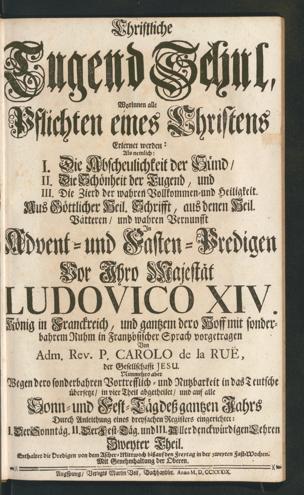 Christliche
Tugend Schul,
Worinnen alle
Pflichten eines Christens
Erlernet werden:
Als nemlich:
I. Die Abscheulichkeit der Sünd/
II. Die Schönheit der Tugend, und
III. Die Zierd der wahren Vollkommen- und Heiligkeit.
Aus Göttlicher Heil. Schrifft, aus denen Heil.
Vätteren, und wahren Vernunfft
In
Advent- und Fasten-Predigen
Vor Ihro Majestät
LUDOVICO XIV.
König in Franckreich, und gantzem dero Hoff mit sonder-
bahrem Ruhm in Frantzösischer Sprach vorgetragen
Von
Adm. Rev. P. CAROLO de la RUE,
der Gesellschafft JESU.
Nunmehro aber
Wegen dero sonderbahren Vortrefflich- und Nutzbarkeit in das Teutsche
übersetzt/ in vier Theil abgetheilet/ und auf alle
Sonn- und Fest-Täg deß gantzen Jahrs
Durch Anleithung eines dreyfachen Registers eingerichtet:
I. Der Sonntäg. II. Der Fest-Täg. und III. Aller denckwürdigen Lehren
Zweyter Theil.
Enthaltet die Predigen von dem Ascher-Mittwoch biß auf den Freytag in der zweyten Fast-Wochen.
Mit Genehmhaltung der Oberen.
Augspurg/ Verlegts Martin Veit, Buchhandler. Anno M, D, CCXXXIX.